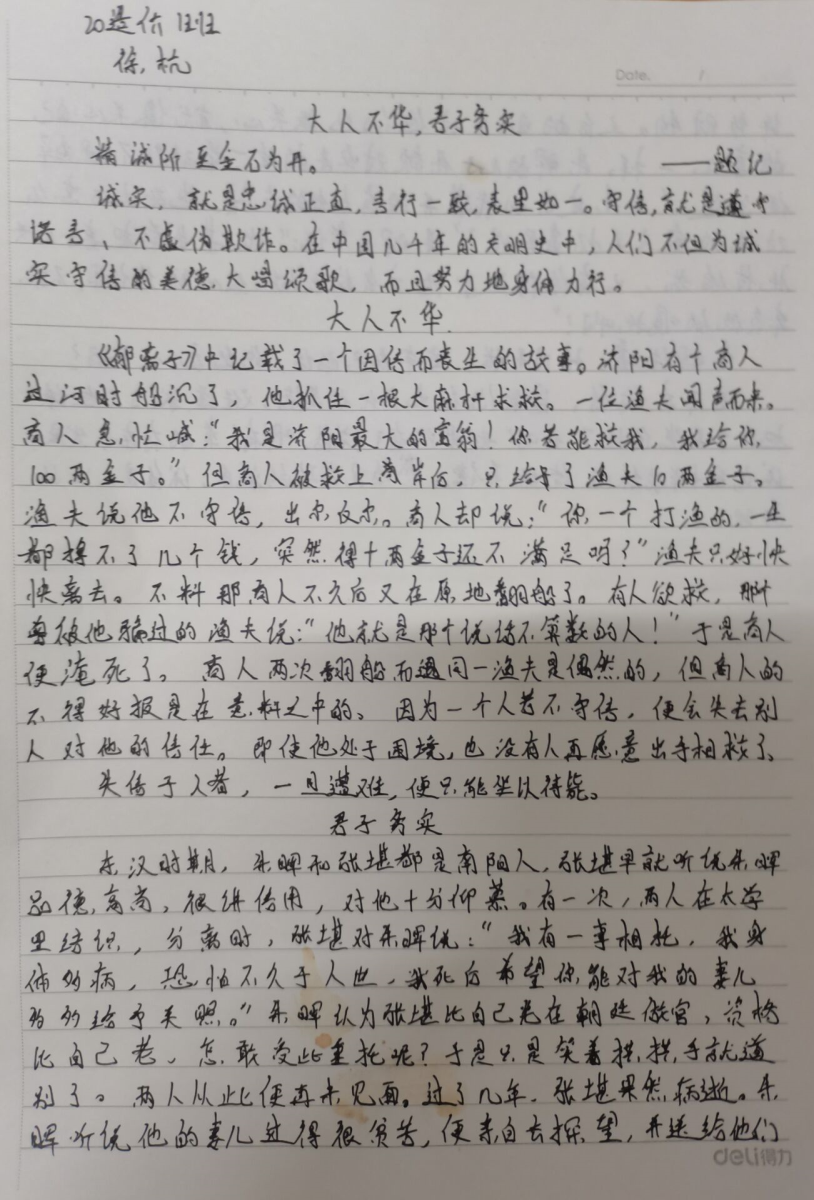 20是信班
徐杭
Date. /
大人不华,君子务实
精诚所至金石为开。 ——题记
诚实,就是忠诚正直,言行一致,表里如一。守信,就是遵守
诺言、不虚伪欺诈。在中国几千年的文明史中,人们不但为诚
实守信的美德大唱颂歌,而且努力地身体力行。
大人不华
《郁离子》中记载了一个因信而丧生的故事。济阳有个商人
过河时船沉了,他抓住一根大麻杆求救。一位渔夫闻声而来。
商人急忙喊:“我是济阳最大的富翁!你若能救我,我给你
100两金子。”但商人被救上岸后,只给了渔夫10两金子。
渔夫说他不守信,出尔反尔。商人却说:“你一个打渔的,一生
都挣不了几个钱,突然得十两金子还不满足吗?”渔夫只好怏
怏离去。不料那商人不久后又在原地翻船了。有人欲救,那个
曾被他骗过的渔夫说:“他就是那个说话不算数的人!”于是商人
便淹死了。商人两次翻船而遇同一渔夫是偶然的,但商人的
不得好报是在意料之中的。因为一个人若不守信,便会失去别
人对他的信任。即使他处于困境,也没有人再愿意出手相救了。
失信于人者,一旦遭难,便只能坐以待毙。
君子务实
东汉时期,朱晖和张堪都是南阳人,张堪早就听说朱晖
品德高尚,很讲信用,对他十分仰慕。有一次,两人在太学
里结识,分离时,张堪对朱晖说:“我有一事相托,我身
体多病,恐怕不久于人世,我死后希望你能对我的妻儿
多多给予关照。”朱晖认为张堪比自己先在朝廷做官,资格
比自己老,怎敢受此重托呢?于是只是笑着拱拱手就道
别了。两人从此便再未见面。过了几年,张堪果然病逝。朱
晖听说他的妻儿过得很贫苦,便亲自去探望,并送给他们
deli得力